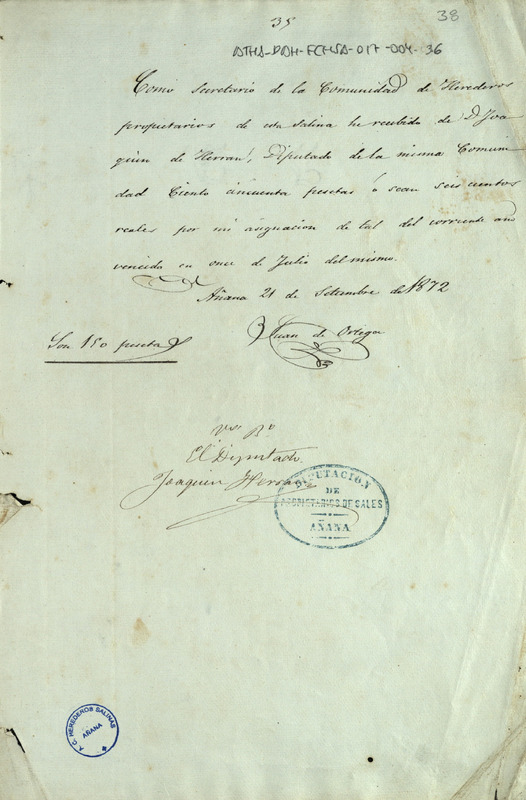 35
38
ATHA-DAH-FCHSA-017-004-36
Como Secretario de la Comunidad de Herederos
propietarios de esta Salina he recibido de D. Joa
quin de Herran, Diputado de la misma Comuni
dad Ciento cincuenta pesetas ó sean seiscientos
reales por mi asignacion de tal del corriente año
vencida en once de Julio del mismo.
Añana 21 de Setiembre de 1872
Juan de Ortega
Son 150 pesetas
Vto. Bo.
El Diputado
Joaquin Herran
DIPUTACION
DE
PROPIETARIOS DE SALES
AÑANA
A.C. HEREDEROS SALINAS
AÑANA